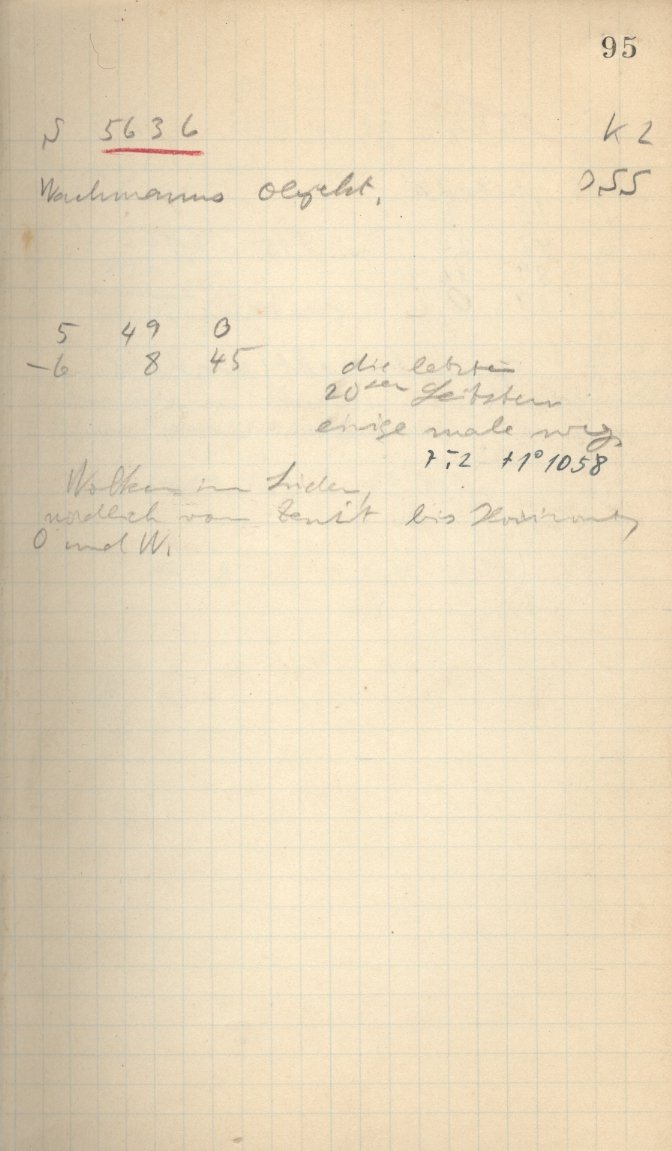 95
S 5636
K 2
Wachmanns Objekt.
055
5 49 0
-6 8 45
die letzten
20 sec Leitstern
einige male weg
7.2 +1° 1058
Wolken im Süden,
nördlich vom Zenit bis Horizont,
O und W.